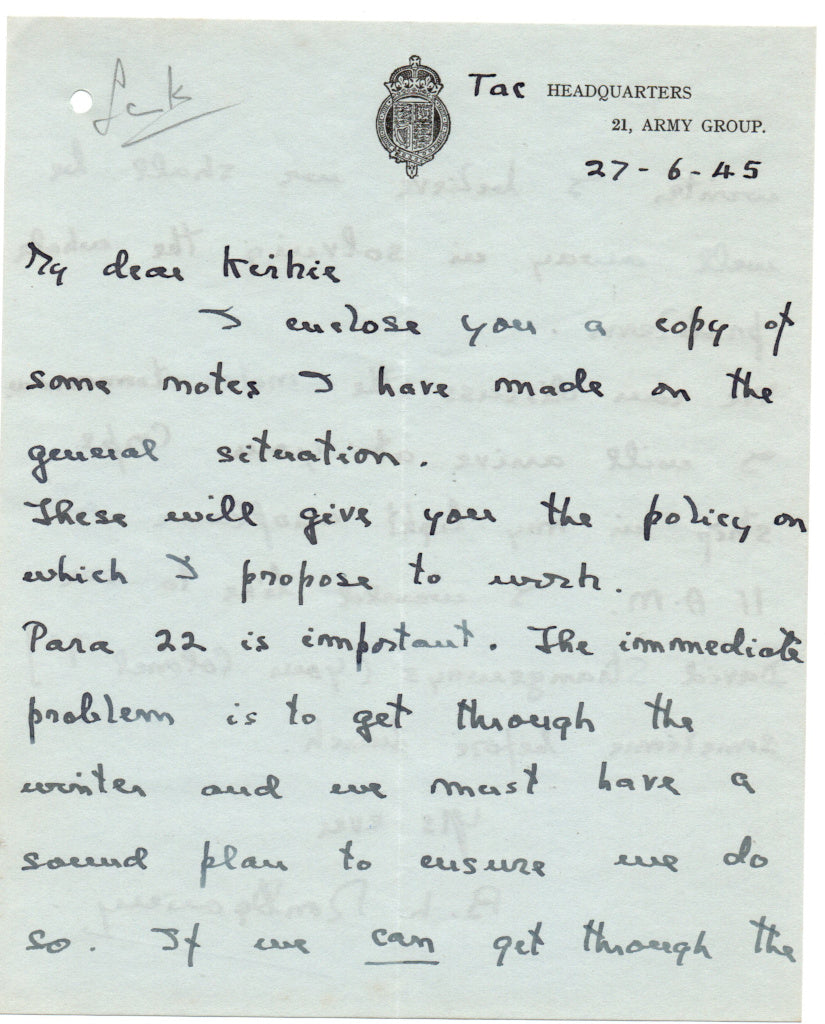 Tac HEADQUARTERS
21, ARMY GROUP.
27-6-45
My dear Kirkie
I enclose you a copy of
some notes I have made on the
general situation.
These will give you the policy on
which I propose to work.
Para 22 is important. The immediate
problem is to get through the
winter and we must have a
sound plan to ensure we do
so. If we can get through the